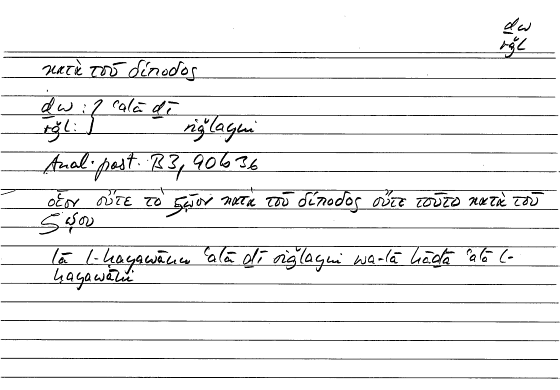 ḏw
rǧl
κατὰ τοῦ δίποδος
ḏw : } ʿalā ḏī
rǧl : } riǧlayni
Anal. post. B3, 90b36
οἷον οὔτε τὸ ζῷον κατὰ τοῦ δίποδος οὔτε τοῦτο κατὰ τοῦ
ζῴου
lā l-ḥayawānu ʿalā ḏī riǧlayni wa-lā hāḏā ʿalā l-
ḥayawāni